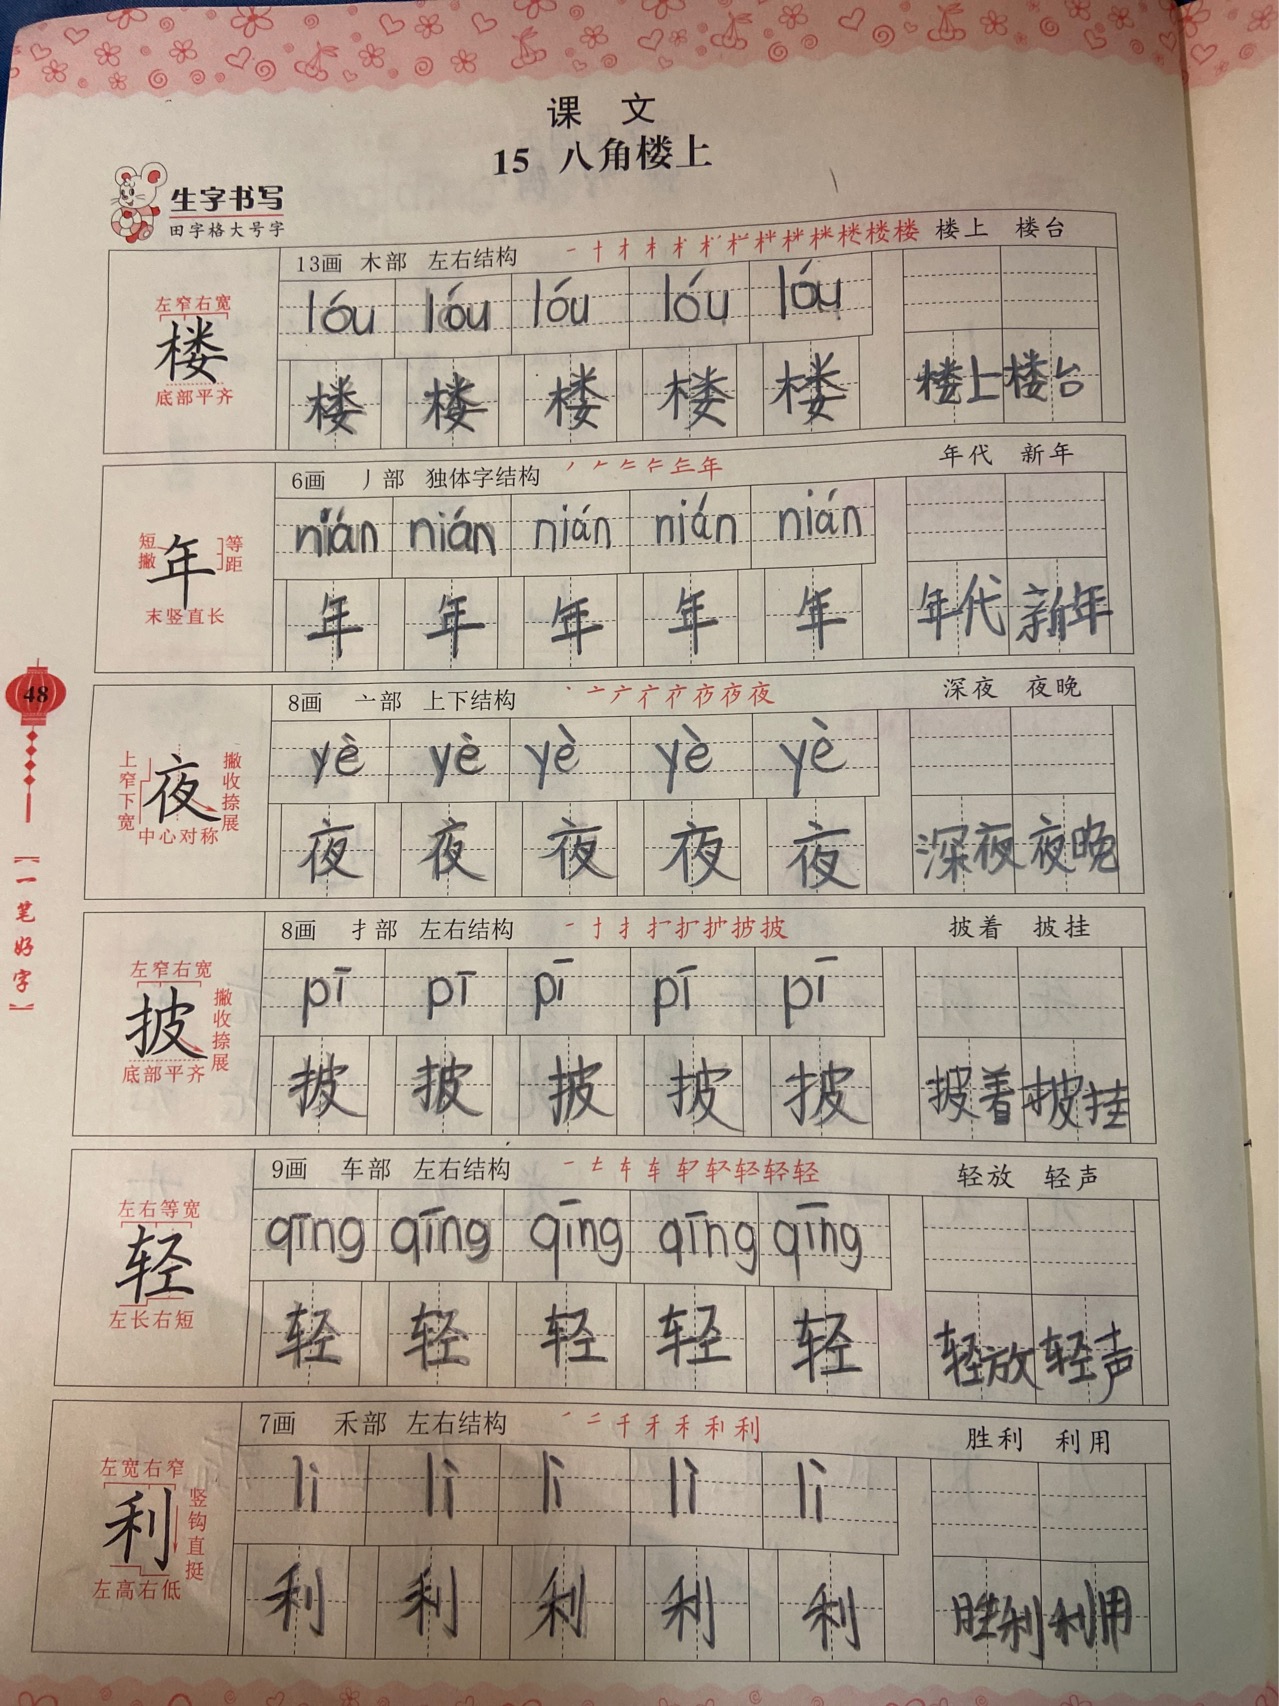 课 文
15 八角楼上
生字书写
田字格大号字
13画 木部 左右结构 楼上 楼台
左窄右宽
楼
底部平齐
lóu lóu lóu lóu lóu
楼 楼 楼 楼 楼 楼上 楼台
6画 丿部 独体字结构 年代 新年
短撇
年
等距
末竖直长
nián nián nián nián nián
年 年 年 年 年 年代 新年
48
8画 亠部 上下结构 深夜 夜晚
上窄下宽
夜
撇收捺展
中心对称
yè yè yè yè yè
夜 夜 夜 夜 夜 深夜 夜晚
【一笔好字】
8画 扌部 左右结构 披着 披挂
左窄右宽
披
撇收捺展
底部平齐
pī pī pī pī pī
披 披 披 披 披 披着 披挂
9画 车部 左右结构 轻放 轻声
左右等宽
轻
左长右短
qīng qīng qīng qīng qīng
轻 轻 轻 轻 轻 轻放 轻声
7画 禾部 左右结构 胜利 利用
左宽右窄
利
竖钩直挺
左高右低
lì lì lì lì lì
利 利 利 利 利 胜利 利用